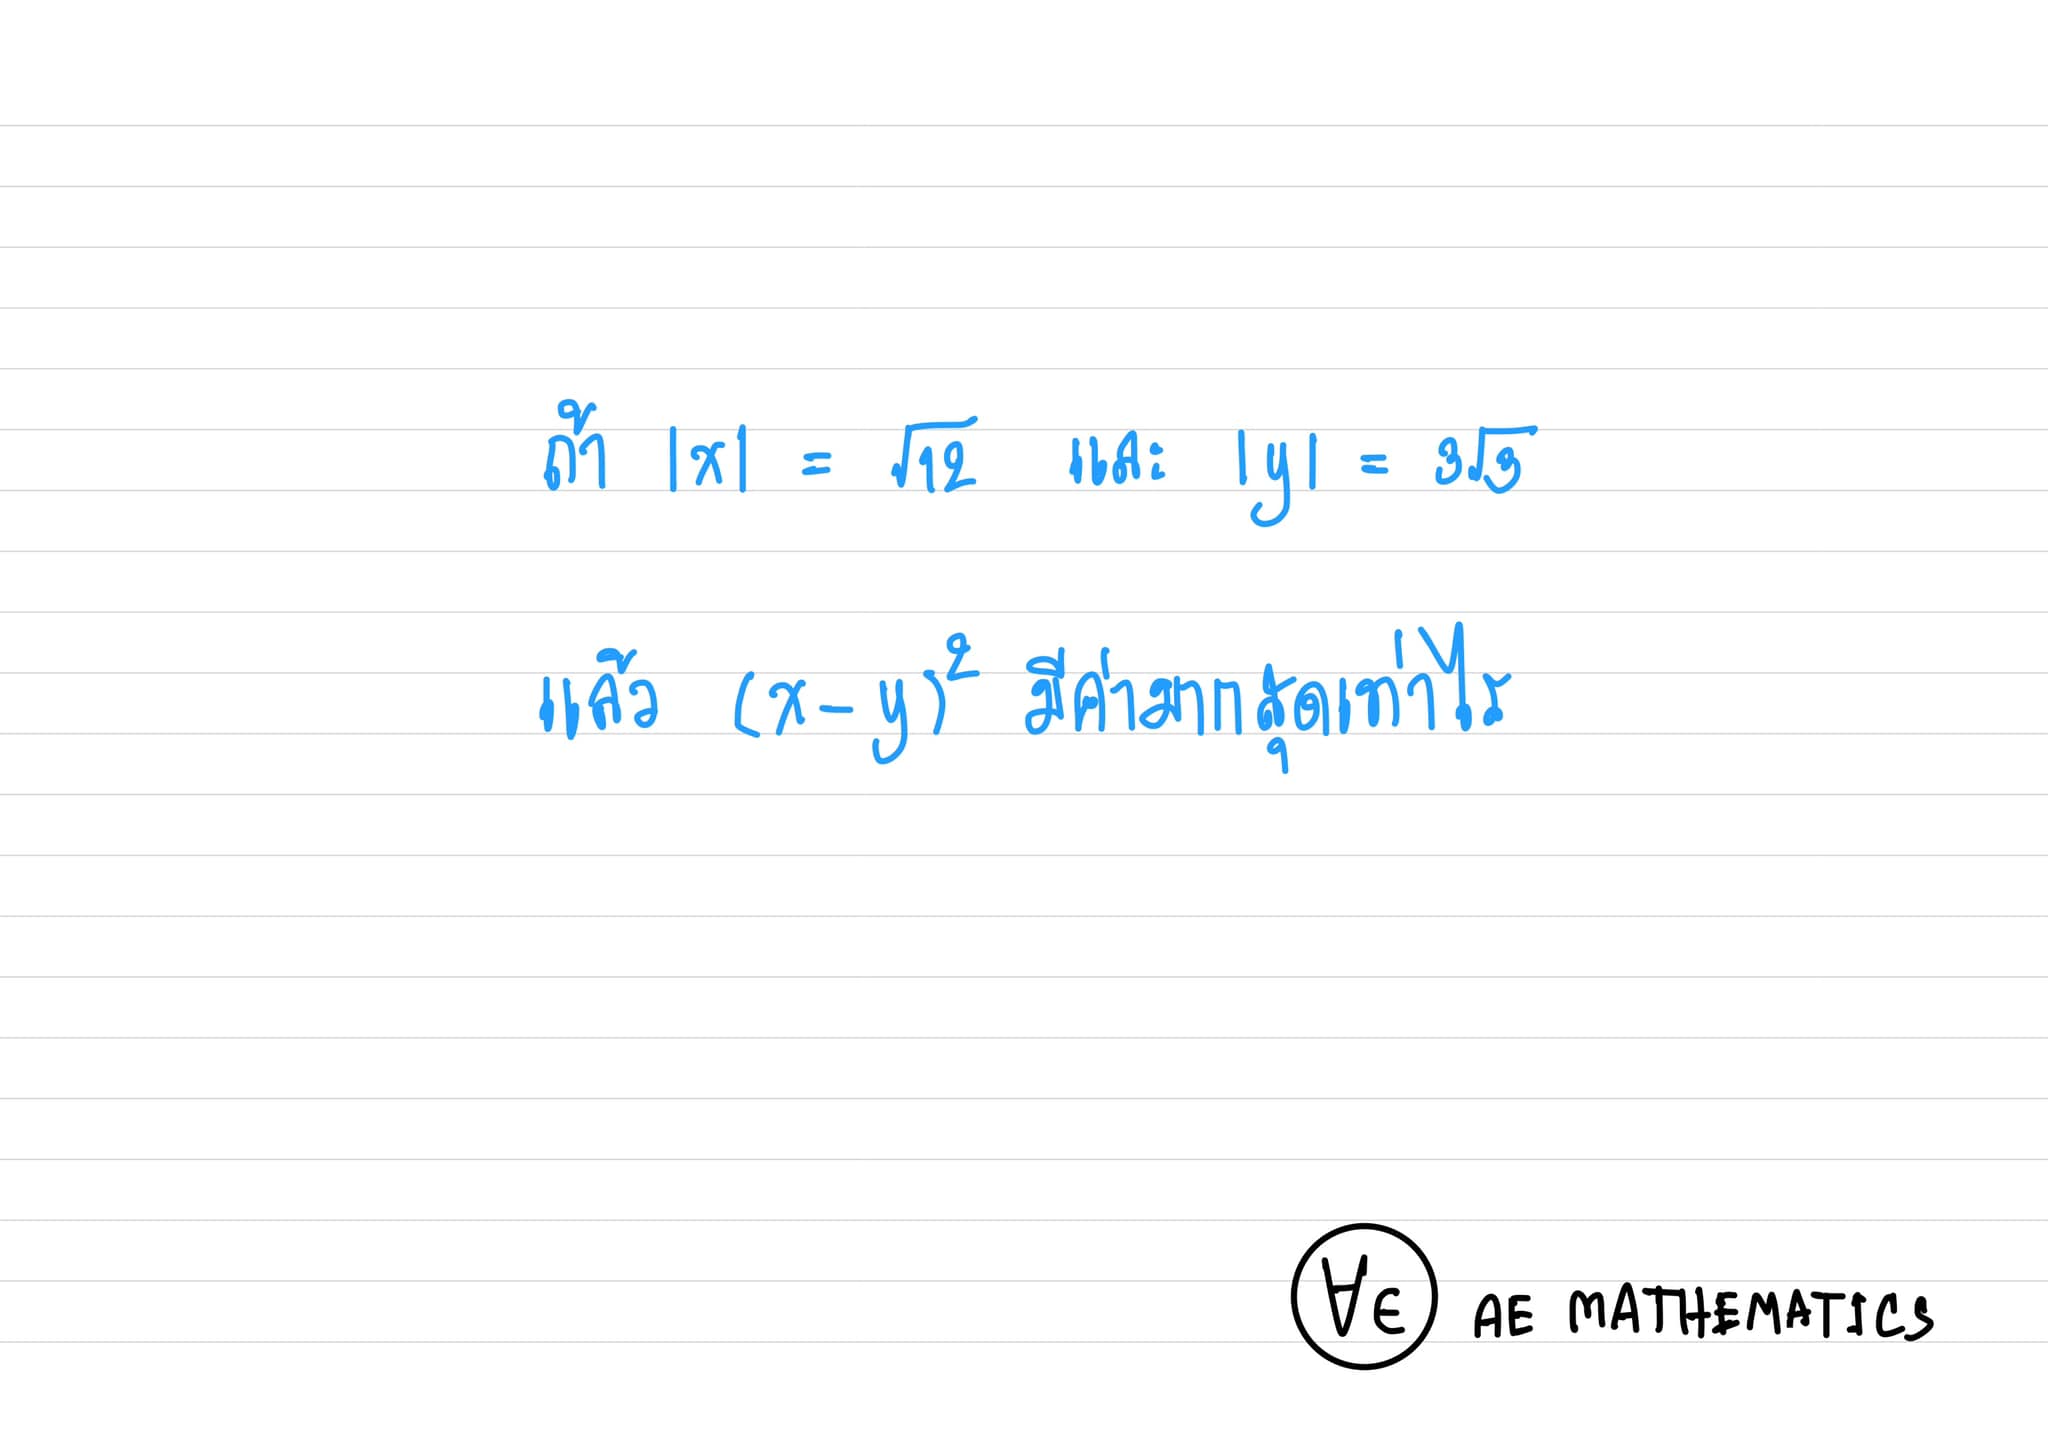 ถ้า |x| = √12 และ |y| = 3√3
แล้ว (x-y)² มีค่ามากสุดเท่าไร
∀∈ AE MATHEMATICS